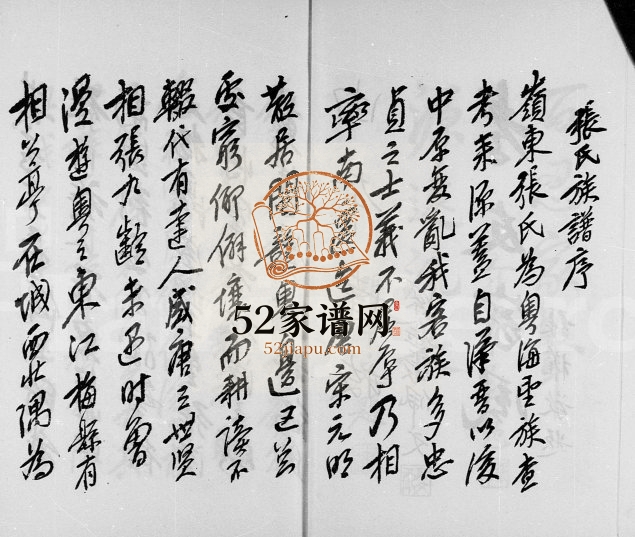 張氏族譜序
嶺東張氏為粵海望族查
考来源蓋自漢晉以後
中原變亂我客族多忠
貞之士義不 乃相
率南 宋元明
散居閩 粵邊已
窮 僻壤而耕讀不
輟代有達人盛唐之世賢
相張九齡未遇時曾
漫遊粵之東江梅縣有
相公亭在城西北隅為
52家谱网
52jiapu.com